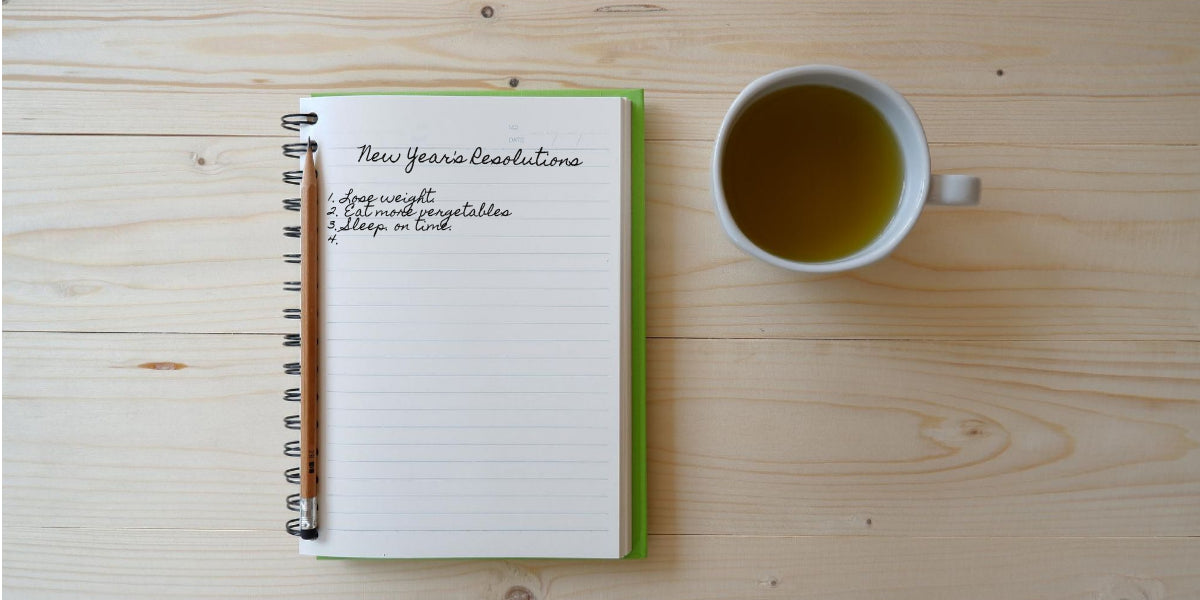 NO.
DATE
New Year's Resolutions
1. Lose weight.
2. Eat more vergetables
3. Sleep on time.
4.